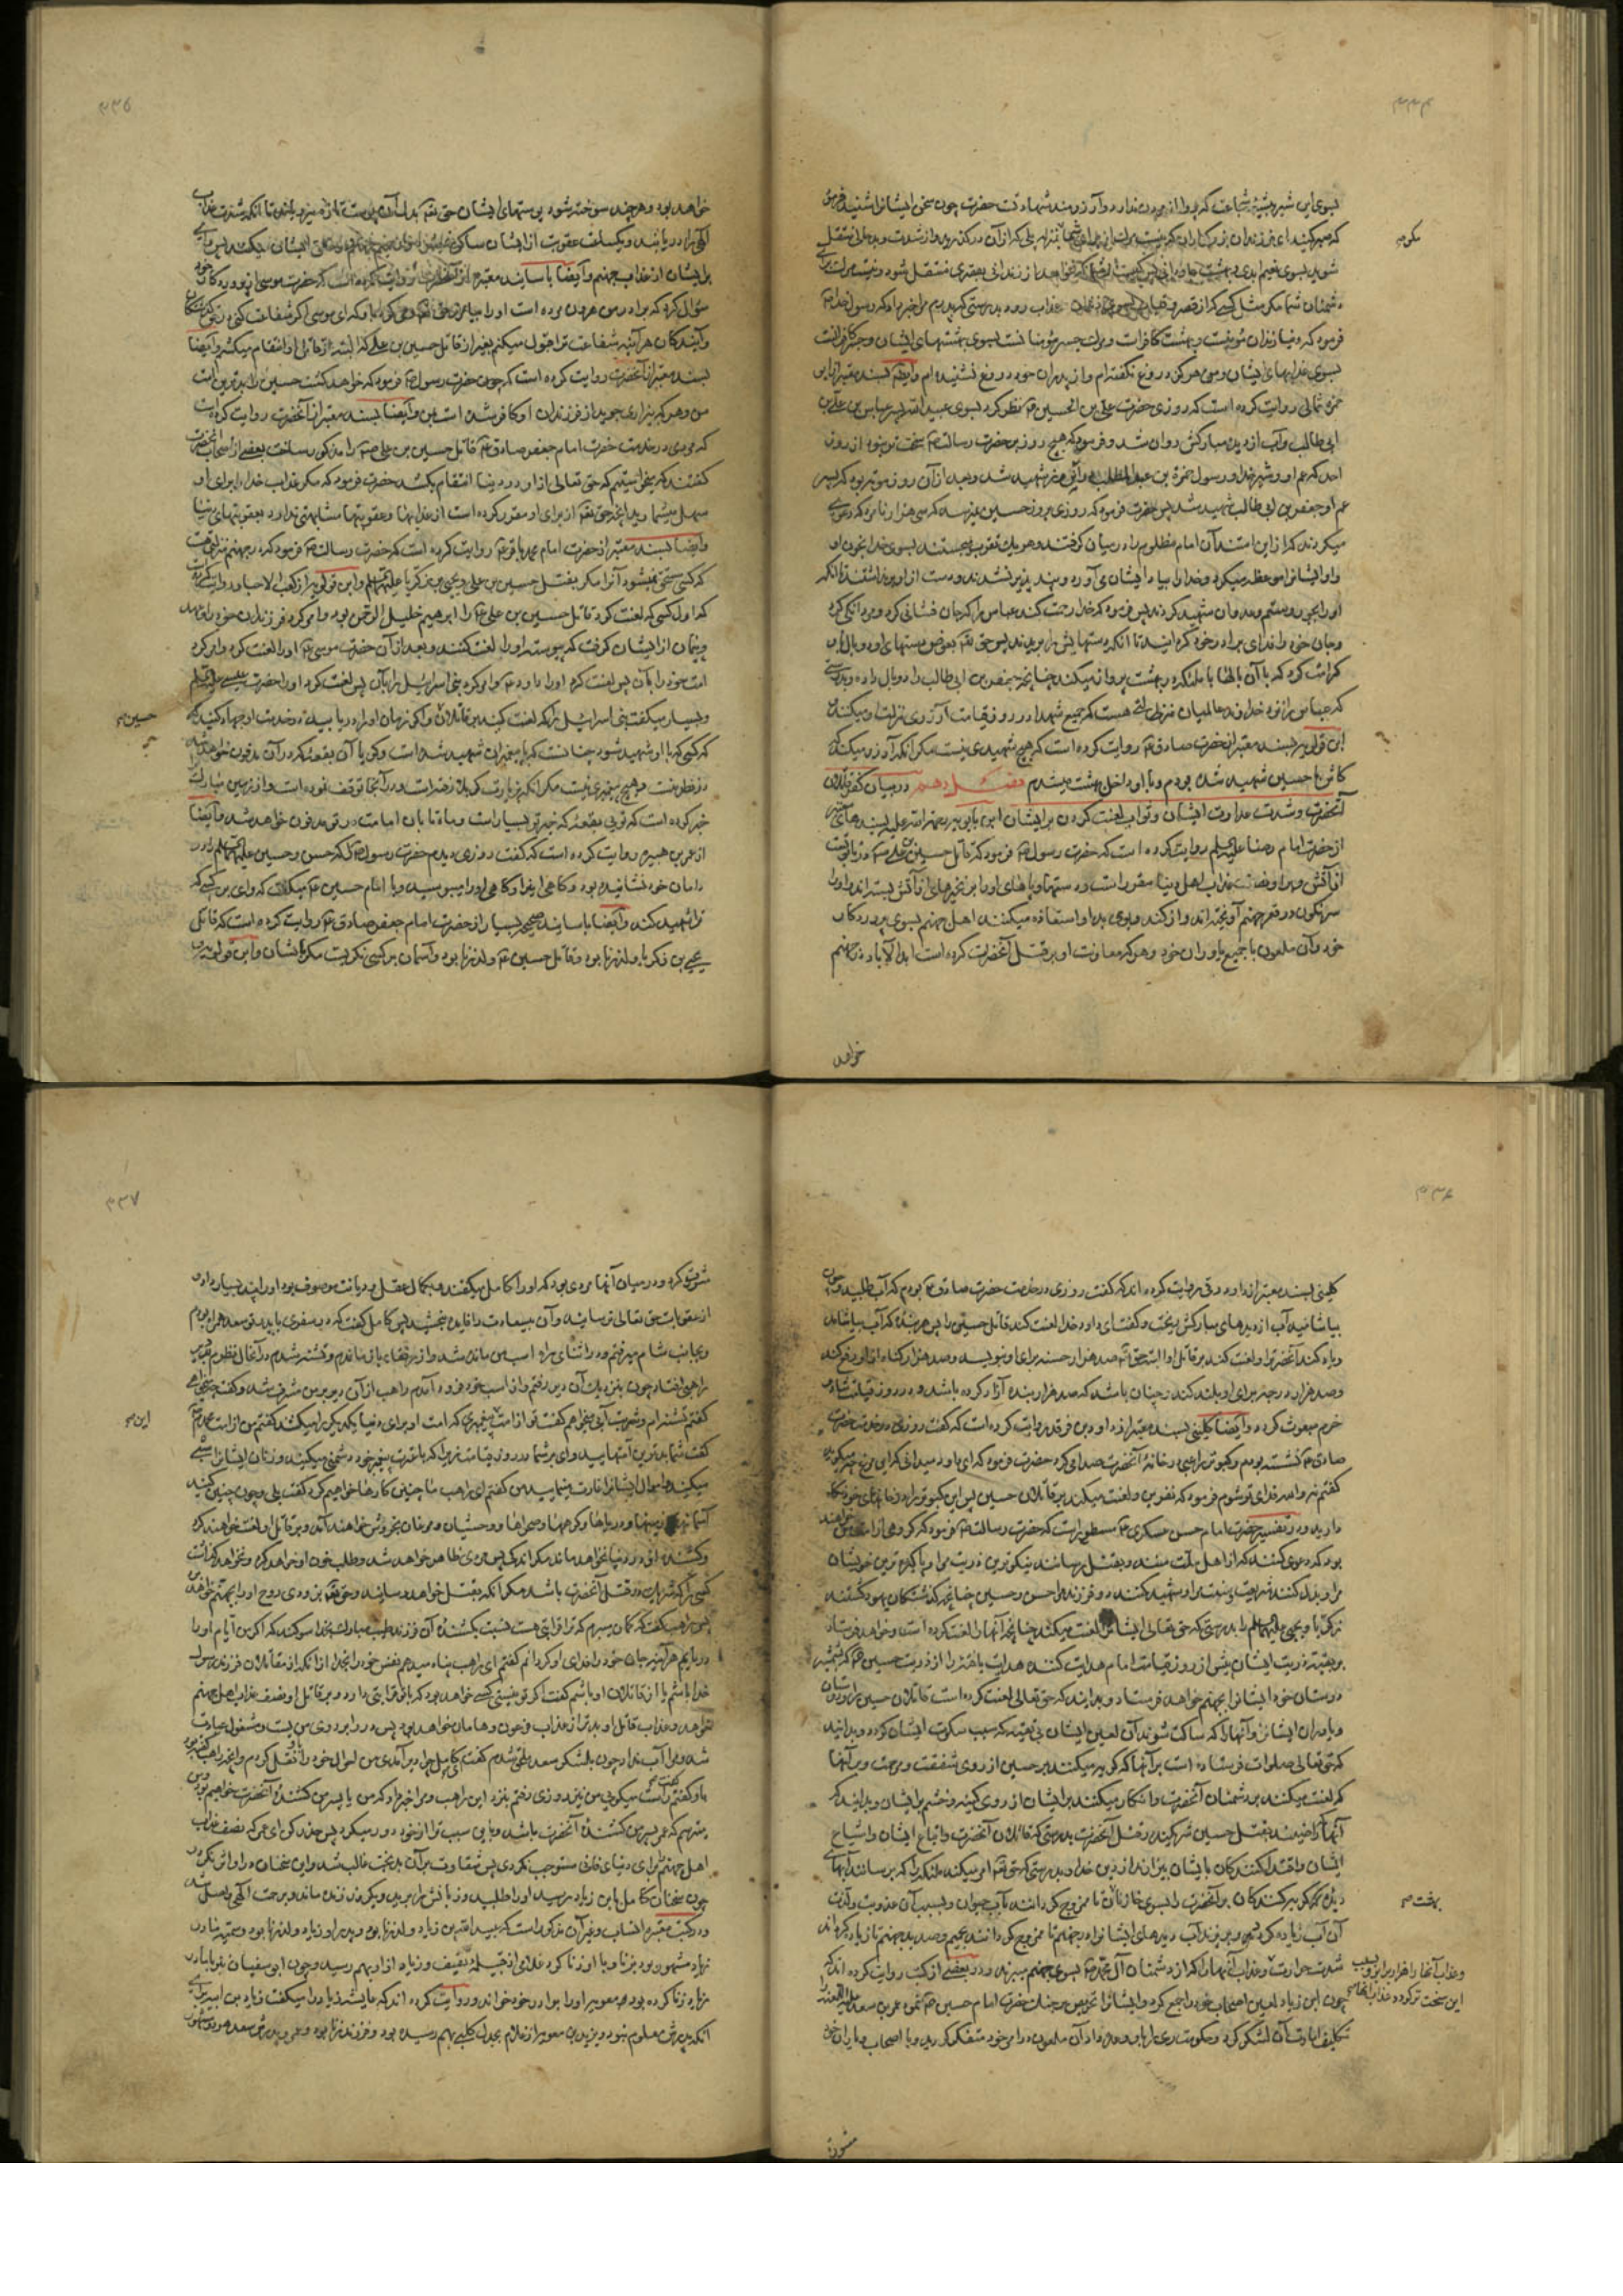 ۳۳۴
بسوی این شیر بیشهٔ شجاعت که پروا از مردن ندارد و آرزومند شهادت حضرت چون سخن ایشانرا شنید فرمود
که صبر کنید ای فرزندان بزرگواران که نیست مرگ از برای شما بمنزله پلی که از آن درگذرید و از شدت و بدحالی منتقل
شوید بسوی نعیم ابدی و بهشت جاودانی پس کیست از شما که نخواهد از زندانی بقصری منتقل شود و نیست مرگ برای
دشمنان شما مگر مثل کسی که از قصر بسوی زندان و عذاب رود بدرستی که پدرم مرا خبر داد که رسول خدا ص
فرمود که دنیا زندان مؤمنست و بهشت کافرانست و مرگ جسر مؤمنانست بسوی بهشتهای ایشان و جسر کافرانست
بسوی عذابهای ایشان و من هرگز دروغ نگفته‌ام و از پدران خود دروغ نشنیده‌ام و ایضا بسند معتبر از ابو
حمزه ثمالی روایت کرده است که روزی حضرت علی بن الحسین ع نظر کرد بسوی عبیدالله پسر عباس بن علی بن
ابی طالب و آب از دیده مبارکش روان شد و فرمود که هیچ روز بر حضرت رسالت ص سخت‌تر نبود از روز
احد که عم او و شیر خدا و رسول حمزة بن عبدالمطلب در آن روز شهید شد و بعد از آن روز موته بود که پسر
عم او جعفر بن ابی طالب شهید شد پس حضرت فرمود که روزی بروز حسین نمیرسد که سی هزار نامرد که دعوی
میکردند که از این امتند آن امام مظلوم را در میان گرفتند و هر یک تقرب میجستند بسوی خدا بخون او
و او ایشانرا موعظه میکرد و خدا را بیاد ایشان می‌آورد و پند پذیر نشدند و دست از او برنداشتند تا آنکه
او را بجور و ستم و عدوان شهید کردند پس فرمود که خدا رحمت کند عباس را که جان‌فشانی کرد و مردانگی کرد
و جان خود را فدای برادر خود گردانید تا آنکه دستهایش را بریدند پس حق تعالی بعوض دستهای او دو بال باو
کرامت کرد که با آن بالها با ملئکه در بهشت پرواز میکند چنانچه بجعفر بن ابی طالب را دو بال داده و بدرستی
که عباس را نزد خداوند عالمیان منزلتی هست که جمیع شهدا در روز قیامت آرزوی منزلت او میکنند
ابن قولویه بسند معتبر از حضرت صادق ع روایت کرده است که هیچ شهیدی نیست مگر آنکه آرزو میکند که
کاش با حسین شهید شده بودم و با او داخل بهشت میشدم فصل دهم در بیان کفر قاتلان
آنحضرت و شدت عداوت ایشان و ثواب لعنت کردن بر ایشان ابن بابویه رحمة الله علیه بسندهای معتبر
از حضرت امام رضا علیه السلم روایت کرده است که حضرت رسول ص فرمود که قاتل حسین بن علی ع در تابوتیست
از آتش و بر او نصف عذاب اهل دنیا مقرر است و دستها و پاهای او را بزنجیرهای از آتش بسته‌اند و او را
سرنگون در قعر جهنم آویخته‌اند و از گند و بوی بد او استعاذه میکنند اهل جهنم بسوی پروردگار
خود و آن ملعون با جمیع یاوران خود و هر که معاونت او بر قتل آنحضرت کرده است ابدالاباد در جهنم
خواهد
۳۳۵
خواهد بود و هر چند سوخته شود پوستهای ایشان حق تعالی بدل آن پوست تازه میرویاند تا آنکه شدت عذاب
الهی را دریابند و یکساعت عقوبت از ایشان ساکن نمیشود
بر ایشان از عذاب جهنم و ایضا باسانید معتبره از آنحضرت روایت کرده است که حضرت موسی از پروردگار خود
سؤال کرد که برادرم هرون مرده است او را بیامرز حق تعالی وحی کرد باو که ای موسی اگر شفاعت کنی در حق گذشتگان
و آیندگان هر آینه شفاعت ترا قبول میکنم بغیر از قاتل حسین بن علی که البته از قاتل او انتقام میکشم و ایضا
بسند معتبر از آنحضرت روایت کرده است که چون حضرت رسول ص فرمود که خواهد کشت حسین را بدترین امت
من و هر که بیزاری جوید از فرزندان او کافر شده است بمن و ایضا بسند معتبر از آنحضرت روایت کرده است
که مردی در خدمت حضرت امام جعفر صادق ع قاتل حسین بن علی ع را مذکور ساخت بعضی از اصحاب آنحضرت
گفتند که میخواستیم که حق تعالی از او در دنیا انتقام بکشد حضرت فرمود که مگر عذاب خدا را برای او
سهل میشمارید آنچه حق تعالی از برای او مقرر کرده است از عذابها و عقوبتها مشابهتی ندارد بعقوبتهای دنیا
و ایضا بسند معتبر از حضرت امام محمد باقر ع روایت کرده است که حضرت رسالت ص فرمود که در جهنم منزلی هست
که کسی مستحق نمیشود آنرا مگر بقتل حسین بن علی و یحیی بن زکریا علیهم السلم و ابن قولویه از کعب الاحبار روایت کرده
که اول کسی که لعنت کرد قاتل حسین بن علی ع را ابرهیم خلیل الرحمن بود و امر کرد فرزندان خود را
و پیمان از ایشان گرفت که پیوسته او را لعنت کنند و بعد از آن حضرت موسی ع او را لعنت کرد و امر کرد
امت خود را بآن پس لعنت کرد او را داود ع و امر کرد بنی اسرائیل را بآن پس لعنت کرد او را حضرت عیسی علیه السلم
و بسیار میگفت بنی اسرائیل را که لعنت کنید بر قاتلان حسین و اگر زمان او را دریابید در خدمت او جهاد کنید که
هر کسی که با او شهید شود چنانست که با پیغمبران شهید شده است و گویا آن بقعه که در آن مدفون خواهد شد
در نظر منست و هیچ پیغمبری نیست مگر آنکه بزیارت کربلا رفته است و در آنجا توقف نموده است و از زمین مبارک
خبر کرده است که توئی بقعهٔ که خیر تو بسیار است و ماه تابان امامت در تو مدفون خواهد شد و ایضا
از عمر بن هبیره روایت کرده است که گفت روزی دیدم حضرت رسول ص که حسن و حسین علیهما السلم را در
دامان خود نشانیده بود و گاهی اینرا و گاهی او را میبوسید و با امام حسین ع میگفت که وای بر کسی که
ترا شهید کند و ایضا باسانید صحیحه بسیار از حضرت امام جعفر صادق ع روایت کرده است که قاتل
یحیی بن زکریا ولدزنا بود و قاتل حسین ع ولدزنا بود و آسمان بر کسی نگریست مگر بر ایشان و ابن قولویه و
۳۳۶
کلینی بسند معتبر از داود رقی روایت کرده‌اند که گفت روزی در خدمت حضرت صادق ع بودم که آب طلبید و چون
بیاشامید آب از دیدهای مبارکش ریخت و گفت ای داود خدا لعنت کند قاتل حسین را پس هر بنده که آب بیاشامد
و یاد کند آنحضرت را و لعنت کند بر قاتل او البته حق تعالی صد هزار حسنه برای او بنویسد و صد هزار گناه از او رفع کند
و صد هزار درجه برای او بلند کند و چنان باشد که صد هزار بنده آزاد کرده باشد و در روز قیامت شاد و
خرم مبعوث گردد و ایضا کلینی بسند معتبر از داود بن فرقد روایت کرده است که گفت روزی در خدمت حضرت
صادق ع نشسته بودم و کبوتر راعبی در خانهٔ آنحضرت صدا میکرد حضرت فرمود که ای داود میدانی که این مرغ چه میگوید
گفتم نه والله فدای تو شوم فرمود که نفرین و لعنت میکند بر قاتلان حسین پس این کبوتر را در خانهای خود نگاه
دارید و در تفسیر حضرت امام حسن عسکری ع مسطور است که حضرت رسالت ص فرمود که گروهی از امت من خواهند
بود که دعوی کنند که از اهل ملت منند و بقتل رسانند نیکوترین ذریت مرا و پاکیزه‌ترین خویشان
مرا و بدل کنند شریعت و سنت مرا و شهید کنند دو فرزند مرا حسن و حسین چنانچه گذشتگان یهود کشتند
زکریا و یحیی علیهما السلم را بدرستی که حق تعالی ایشانرا لعنت میکند چنانچه آنها را لعنت کرده است و خواهد فرستاد
بر بقیهٔ ذریت ایشان پیش از روز قیامت امام هدایت کننده هدایت یافته را از ذریت حسین ع که بشمشیر
دوستان خود ایشانرا بجهنم خواهد فرستاد و بدانید که حق تعالی لعنت کرده است قاتلان حسین را و دوستان
و یاوران ایشانرا و آنها را که ساکت شوند از لعن ایشان بی تقیه که سبب سکوت ایشان گردد و بدانید
که حق تعالی صلوات فرستاده است بر آنها که گریه میکنند بر حسین از روی شفقت و رحمت و بر آنها
که لعنت میکنند بر دشمنان آنحضرت و انکار میکنند بر ایشان از روی کینه و خشم بر ایشان و بدانید که
آنها که راضیند بقتل حسین شریکند در قتل آنحضرت بدرستی که قاتلان آنحضرت و اتباع ایشان و اشیاع
ایشان و اقتدا کنندگان بایشان بیزارند از دین خدا و بدرستی که حق تعالی امر میکند ملئکه را که برسانند آبهای
دیده گریه‌کنندگان بر آنحضرت را بسوی خازنان بهشت تا ممزوج گردانند بآب حیوان و بسبب آن عذوبت و لذت
آن آب زیاده گردد و بریزند آب دیدهای ایشانرا در جهنم تا ممزوج گردانند بحمیم و صدید جهنم تا زیاده گرداند
شدت حرارت و عذاب آنها را که از دشمنان آل محمد ص بسوی جهنم میبرند و در بعضی از کتب روایت کرده‌اند که
چون ابن زیاد لعین اصحاب خود را جمع کرد و ایشانرا تحریص بر جنگ حضرت امام حسین ع نمود عمر بن سعد علیه اللعنه را
تکلیف امارت آن لشکر کرد و حکومت ری را باو وعده داد آن ملعون در امر خود متفکر گردید و با اصحاب و یاران خود
مشورت
۳۳۷
مشورت کرد و در میان آنها مردی بود که او را کامل میگفتند و بکمال عقل و دیانت موصوف بود او را پند بسیار داد و
از عقوبات حق تعالی ترسانید و آن بیسعادت را فایده نبخشید پس کامل گفت که در سفری با پدر تو سعد همراه بودم
و بجانب شام میرفتم و در اثنای راه اسب من مانده شد و از رفقا باز ماندم و تشنه شدم در آنحال نظرم بدیر
راهبی افتاد چون بنزدیک آن دیر رفتم و از اسب خود فرود آمدم راهب از آن دیر بر من مشرف شد و گفت چه میخواهی
گفتم تشنه‌ام و شربت آبی میخواهم گفت تو از امت پیغمبری که امت او برای دنیا یکدیگر را میکشند گفتم من از امت محمدم ص
گفت شما بدترین امتهایید وای بر شما در روز قیامت زیرا که با عترت پیغمبر خود دشمنی میکنید و زنان ایشانرا اسیر
میکنید و اموال ایشانرا غارت مینمایید من گفتم ای راهب ما چنین کارها خواهیم کرد گفت بلی و چون چنین کنید
آسمانها و زمینها و دریاها و کوهها و صحراها و وحشیان و مرغان بخروش خواهند آمد و بر قاتل او لعنت خواهند کرد
و کشندهٔ او در دنیا نخواهد ماند مگر اندکی پس مردی ظاهر خواهد شد و طلب خون او خواهد کرد و نخواهد گذاشت
کسی را که شریک در قتل آنحضرت باشد مگر آنکه بقتل خواهد رسانید و حق تعالی بزودی روح او را بجهنم خواهد برد
پس راهب گفت که گمان میبرم که ترا قرابتی هست نسبت بکشندهٔ آن فرزند طیب مبارک بخدا سوگند که اگر من ایام او را
دریابم هر آینه جان خود را فدای او گردانم گفتم ای راهب پناه میدهم نفس خود را بخدا از آنکه از مقاتلان فرزند رسول
خدا باشم یا از قاتلان او باشم گفت اگر تو نیستی کسی خواهد بود که با تو قرابتی دارد و بر قاتل او نصف عذاب اهل جهنم
خواهد بود و عذاب قاتل او بدتر از عذاب فرعون و هامان خواهد بود پس در را بر روی من بست و مشغول عبادت
شد و مرا آب نداد چون بلشکر سعد ملحق شدم گفت ای کامل چرا دیر آمدی من احوال خود را باو نقل کردم و آنچه راهب گفته بود
باو گفتم گفت راست میگوئی من نیز روزی رفتم بنزد این راهب و مرا خبر داد که من یا پسر من کشندهٔ آنحضرت خواهیم بود و من
میترسم که عمر پسر من کشندهٔ آنحضرت باشد و باین سبب ترا از خود دور میکرد پس حذر کن ای عمر که نصف عذاب
اهل جهنم را برای دنیای فانی مستوجب نگردی پس شقاوت بر آن بدبخت غالب شد و این سخنان در او اثر نکرد و
چون سخنان کامل بابن زیاد رسید او را طلبید و زبانش را برید و یکروز زنده ماند و برحمت الهی واصل شد
و در کتب معتبره انساب و غیر آن مذکور است که عبیدالله بن زیاد ولدزنا بود و پدر او زیاد ولدزنا بود و سمیه مادر
زیاد مشهور بود بزنا و با او زنا کرد غلامی از قبیلهٔ ثقیف و زیاد از او بهم رسید و چون ابی سفیان نیز با مادر
زیاد زنا کرده بود معویه او را برادر خود خواند و روایت کرده‌اند که عایشه زیاد را میگفت زیاد بن ابیه برای
آنکه پدرش معلوم نبود و یزید بن معویه از غلام بجدل کلبی بهم رسیده بود و فرزند زنا بود و عمر و پدرش سعد هر دو